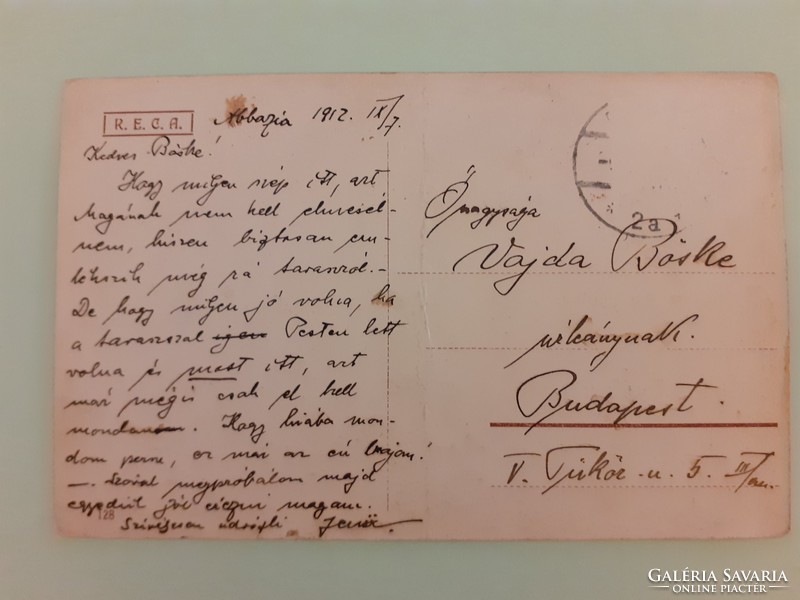 R.E.C.A.
Abbazia 1912. IX/7.
Kedves Böske!
Hogy milyen szép itt, azt
Magának nem kell elmesél-
nem, hiszen biztosan em-
lékszik még rá tavaszról.-
De hogy milyen jó volna, ha
a tavasszal igen Pesten lett
volna és most itt, azt
már mégis csak el kell
mondanom. Hogy hiába mon-
dom persze, ez már az én bajom!
— Szóval megpróbálom majd
egyedül jól érezni magam.
Szívélyesen üdvözli Jenő.
128
2a
Őnagysága
Vajda Böske
úrleánynak.
Budapest.
V. Tükör-u. 5. III/em.
GALÉRIA SAVARIA
ONLINE PIACTÉR